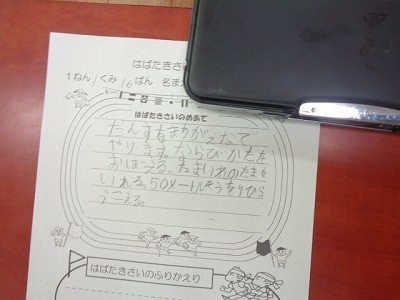 はばたきさい
1ねん1くみ16ばん 名ま
はばたきさいのめあて
だんすをまちがうなで
やります。ならびかたを
おぼえる。たまいれのたまを
いれる。50メートルそうを
うごえる。
はばたきさいのふりかえり